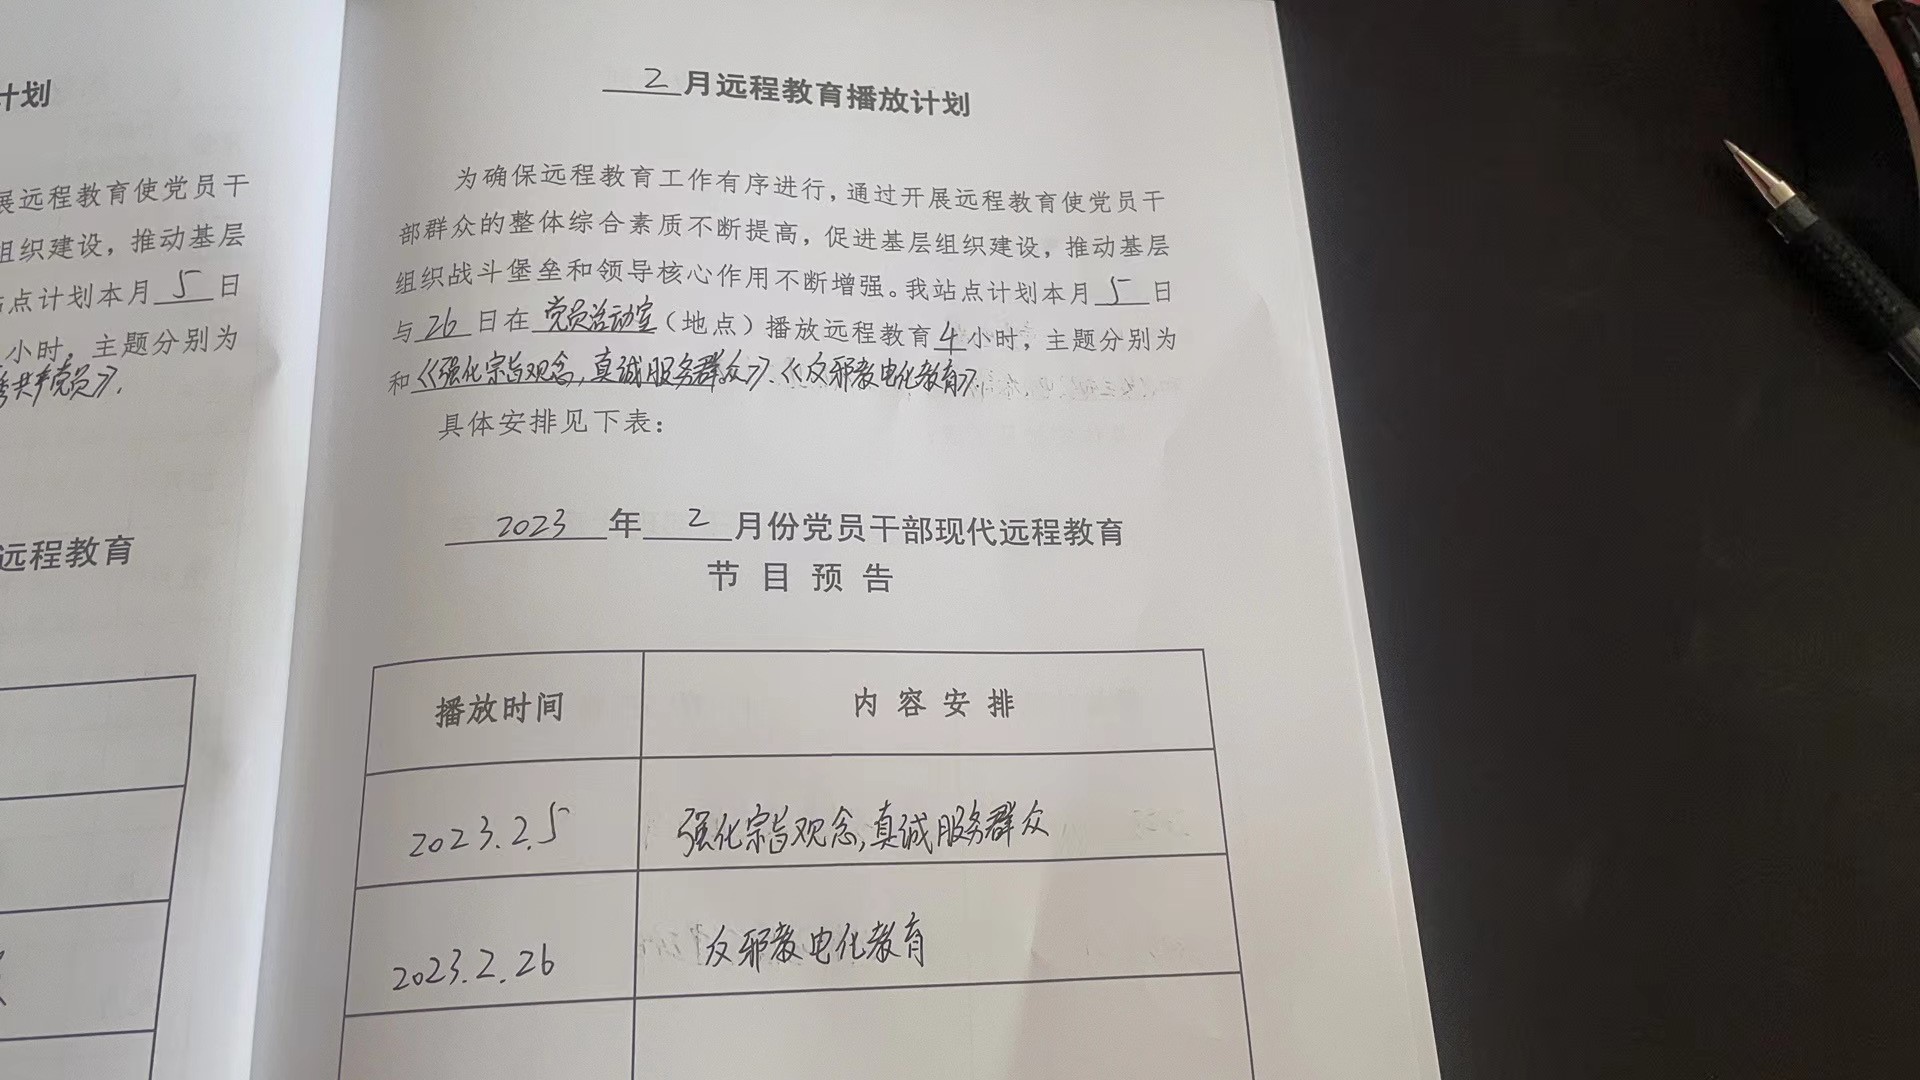 计划
展远程教育使党员干
组织建设，推动基层
站点计划本月5日
小时，主题分别为
共产党员》.
远程教育
2月远程教育播放计划
为确保远程教育工作有序进行，通过开展远程教育使党员干
部群众的整体综合素质不断提高，促进基层组织建设，推动基层
组织战斗堡垒和领导核心作用不断增强。我站点计划本月5日
与26日在党员活动室（地点）播放远程教育4小时，主题分别为
和《强化宗旨观念,真诚服务群众》.《反邪教电化教育》.
具体安排见下表：
2023年2月份党员干部现代远程教育
节目预告
播放时间 内容安排
2023.2.5 强化宗旨观念,真诚服务群众
2023.2.26 反邪教电化教育